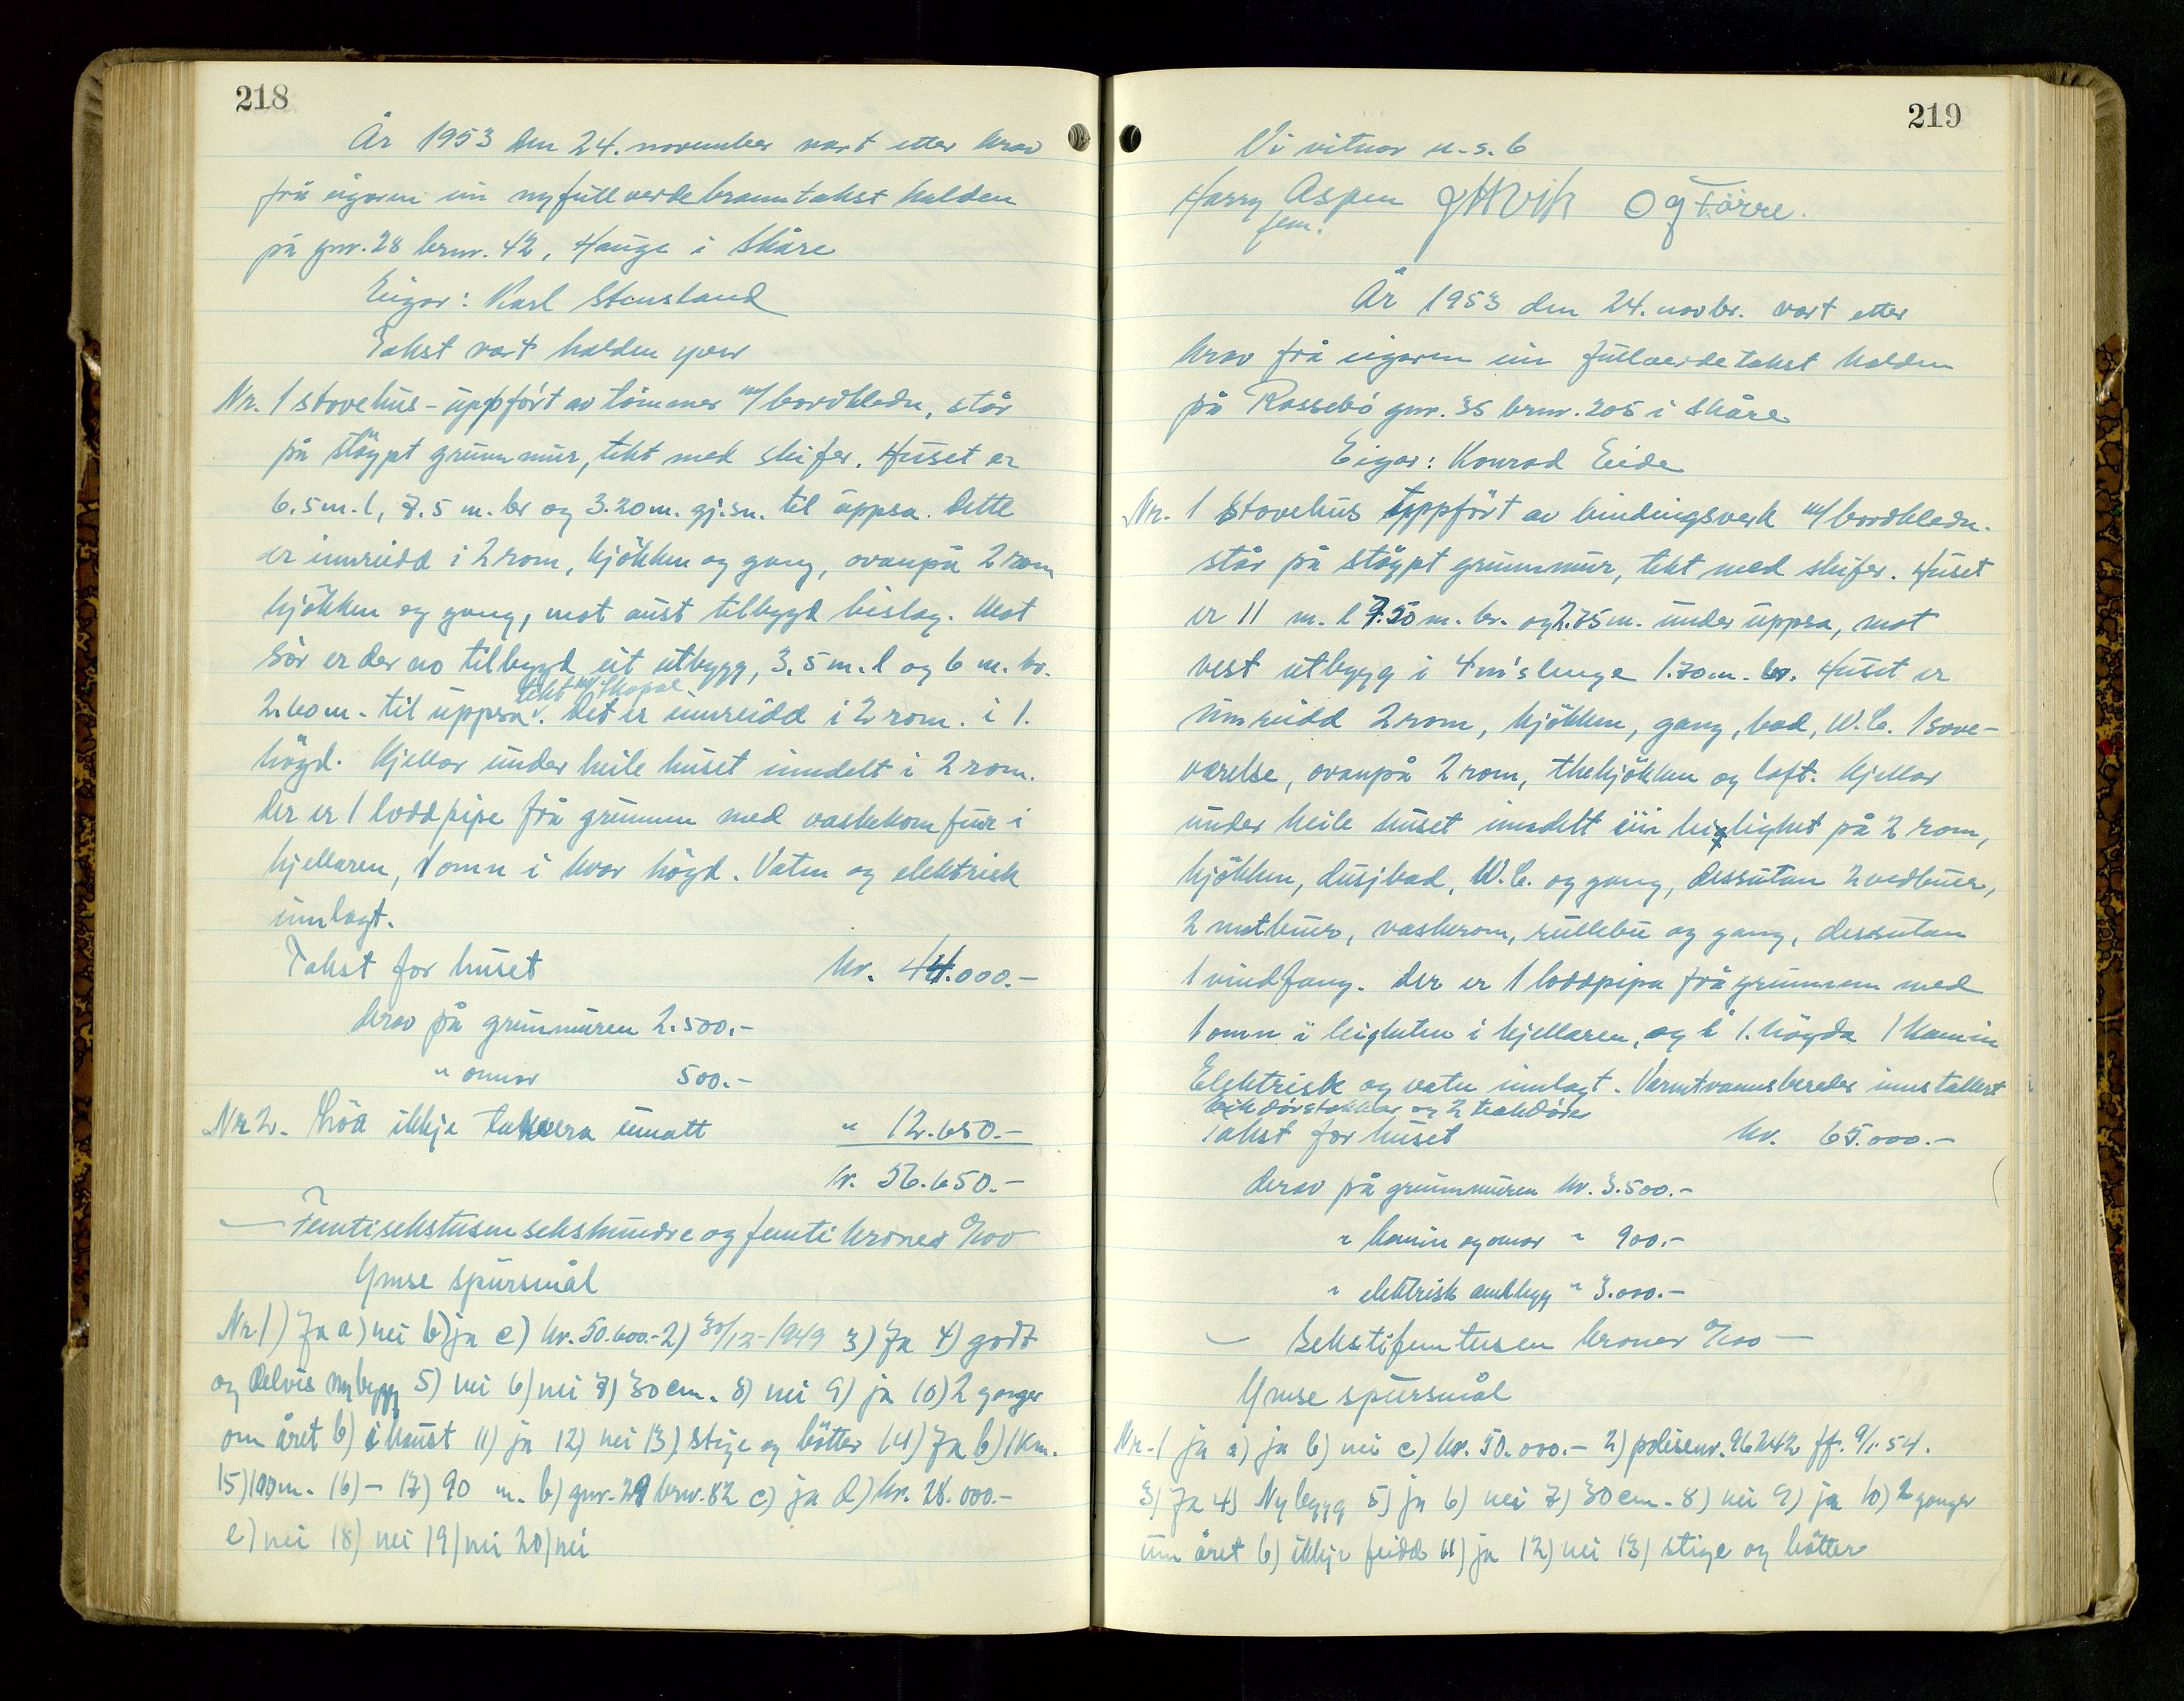 218
År 1953 den 24. november vart etter krav
frå eigaren ein ny fullverdebranntakst halden
på gnr. 28 brnr. 42, Hauge i Skåre
Eigar: Karl Stensland
Takst vart halden yver
Nr. 1 stovehus - uppfört av tömmer m/bordkledn, står
på støypt grunnmur, tekt med skifer. Huset er
6.5 m. l, 7.5 m. br og 3.20 m. gj.sn. til uppsa. Dette
er innreidd i 2 rom, kjökken og gang, ovanpå 2 rom
kjökken og gang, mot aust tilbygd bislag. Mot
sör er der no tilbygd eit utbygg, 3.5 m. l og 6 m. br.
tekt m/Skapal
2.60 m. til uppsa. Det er innreidd i 2 rom. i 1.
högd. Kjellar under heile huset inndelt i 2 rom.
Der er 1 loddpipe frå grunnen med vaskekomfur i
kjellaren, 1 omn i kvar högd. Vatn og elektrisk
innlagt.
Takst for huset kr. 44.000.-
Derav på grunnmuren 2.500.-
" omnar 500.-
Nr 2. Löa ikkje takséra umatt " 12.650.-
kr. 56.650.-
- Femtisekstusen sekshundre og femti kroner 0/00
Ymse spursmål
Nr 1) Ja a) nei b) ja c) kr. 50.600.- 2) 30/12-1949 3) Ja 4) godt
og delvis nybygg 5) nei 6) nei 7) 30 cm. 8) nei 9) ja 10) 2 ganger
om året b) i haust 11) ja 12) nei 13) stige og bötter 14) Ja b) 1 km.
15) 100 m. 16) - 17) 90 m. b) gnr. 29 brnr. 82 c) ja d) kr. 28.000.-
e) nei 18) nei 19) nei 20) nei
219
Vi vitnar u.s.b
Harry Aspen JHVik O G Förre.
fem.
År 1953 den 24. novbr. vart etter
krav frå eigaren ein fullverdetakst halden
på Rossebö gnr. 35 brnr. 205 i Skåre
Eigar: Konrad Eide
Nr. 1 Stovehus uppfört av bindingsverk m/bordkledn.
står på støypt grunnmur, tekt med skifer. Huset
er 11 m. l 7.50 m. br. og 2.75 m. under uppsa, mot
vest utbygg i 4 m's lenge 1.70 m. br. Huset er
innreidd 2 rom, kjökken, gang, bad, W.C. 1 sove-
værelse, ovanpå 2 rom, thekjökken og loft. Kjellar
under heile huset inndelt ein leiglighet på 2 rom,
kjökken, dusjbad, W.C. og gang, dessutan 2 vedbuer,
2 matbuer, vaskerom, rullebu og gang, dessutan
1 vindfang. Der er 1 loddpipa frå grunnen med
1 omn i leigheten i kjellaren, og i 1. högda 1 kamin
Elektrisk og vatn innlagt. Varmtvannsbereder innstallert
Eik dörstokkar og 2 teakdörer
Takst for huset kr. 65.000.-
Derav på grunnmuren kr. 3.500.-
" kamin og omnar " 900.-
" elektrisk anlegg " 3.000.-
- Sekstifemtusen kroner 0/00 -
Ymse spursmål
Nr. 1 ja a) ja b) nei c) kr. 50.000.- 2) polisenr. 967442 ff. 9/1 54.
3) Ja 4) Nybygg 5) ja 6) nei 7) 30 cm. 8) nei 9) ja 10) 2 ganger
um året b) ikkje feidd 11) ja 12) nei 13) stige og bötter